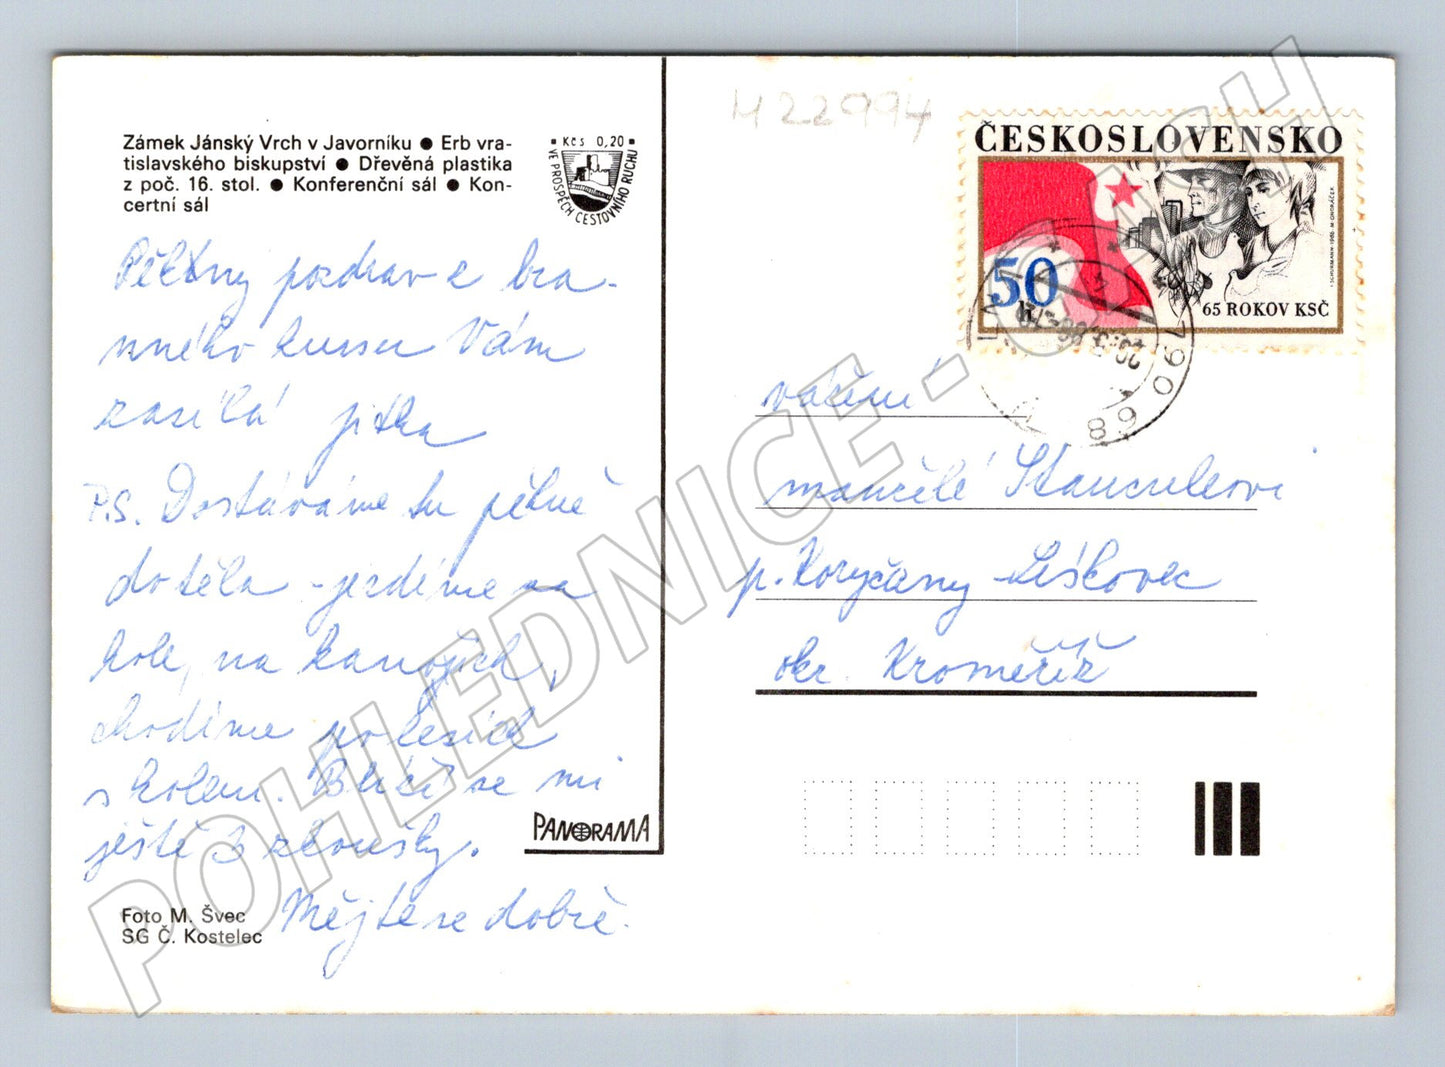 Zámek Jánský Vrch v Javorníku ● Erb vra-
tislavského biskupství ● Dřevěná plastika
z poč. 16. stol. ● Konferenční sál ● Kon-
certní sál
Kčs 0,20
VE PROSPĚCH CESTOVNÍHO RUCHU
Pěkný pozdrav z bra-
nného kursu Vám
zasílá Jitka
P.S. Dostáváme tu pěkně
do těla - jezdíme na
kole, na kanojích,
chodíme po lesích
s kolem. Blíží se mi
ještě 3 zkoušky.
Mějte se dobře.
Foto M. Švec
SG Č. Kostelec
PANORAMA
H22994
ČESKOSLOVENSKO
50 h
65 ROKOV KSČ
I. SCHURMANN-1986-M. ONDRÁČEK
790 68
vážení
manželé Stanculeovi
p. Koryčany - Lískovec
okr. Kroměříž
POHLEDNICE - CMCH